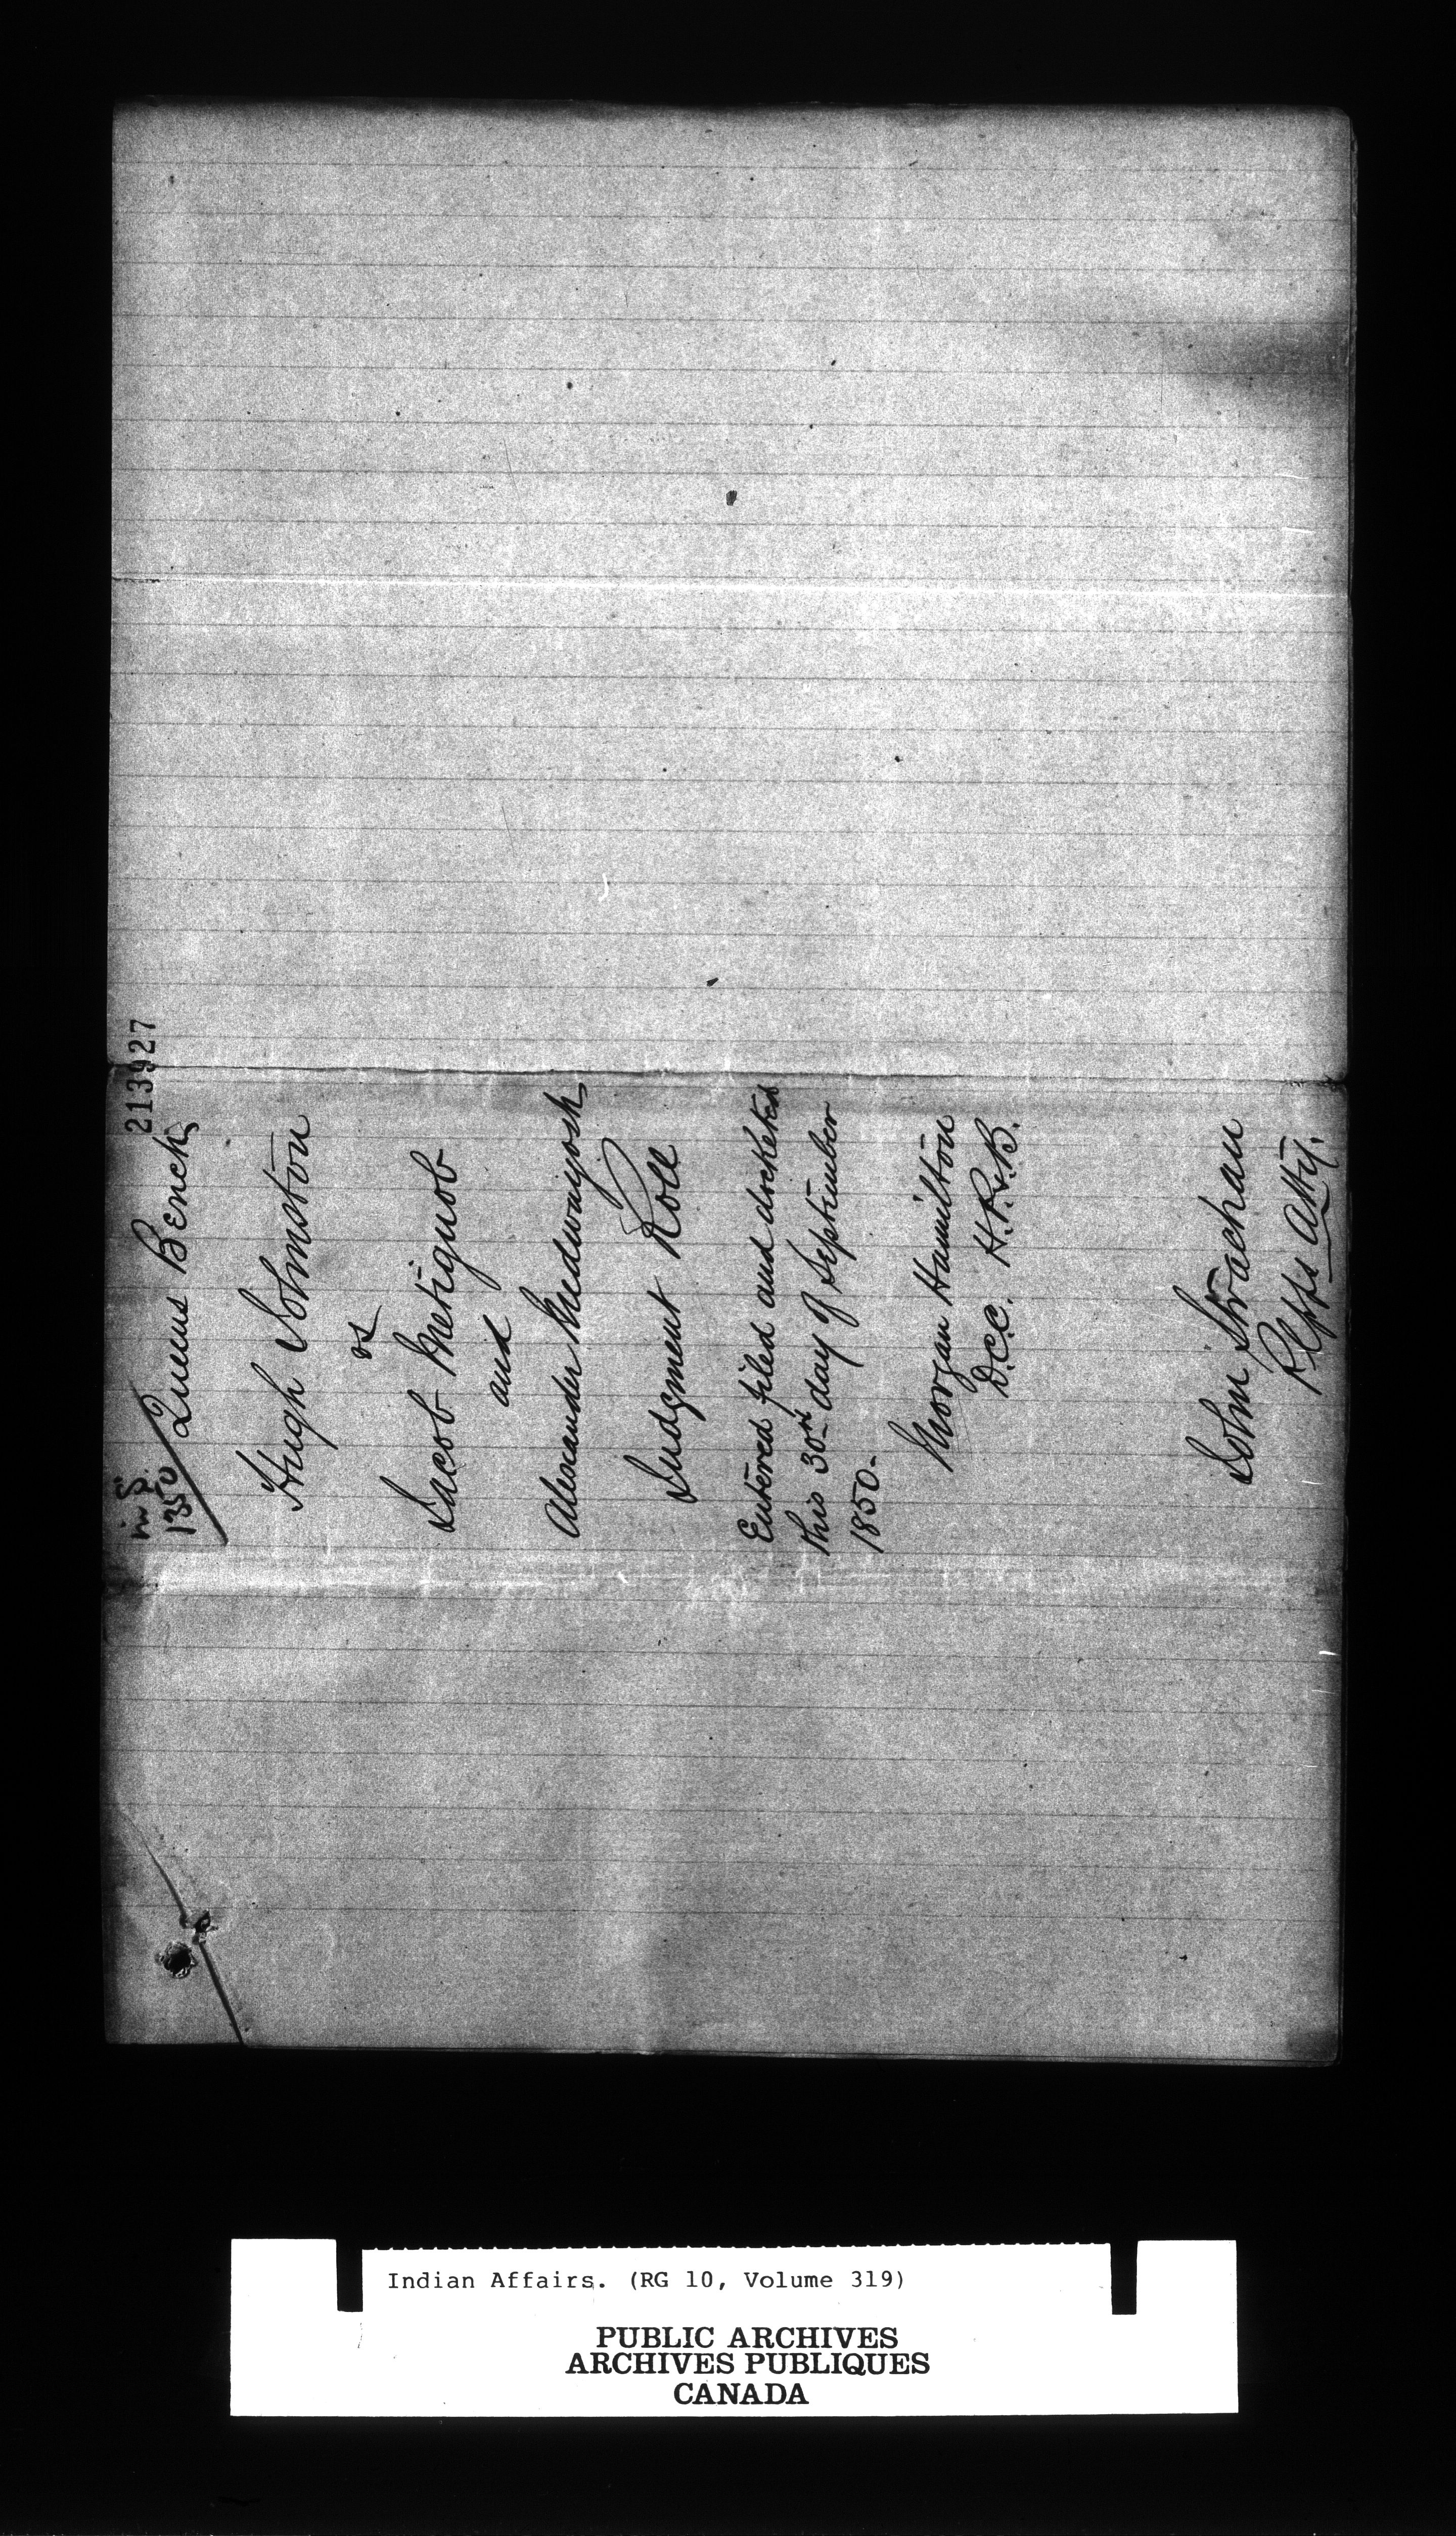 213927
in S.
1350
Queens Bench
Hugh Johnston
vs
Jacob Metiguob
and
Alexander Madwayosh
Judgment Roll
Entered filed and docketed
this 30th day of September
1850-
Morgan Hamilton
D.C.C. H.P.&B.
John Strachan
Plffs Atty.
Indian Affairs. (RG 10, Volume 319)
PUBLIC ARCHIVES
ARCHIVES PUBLIQUES
CANADA